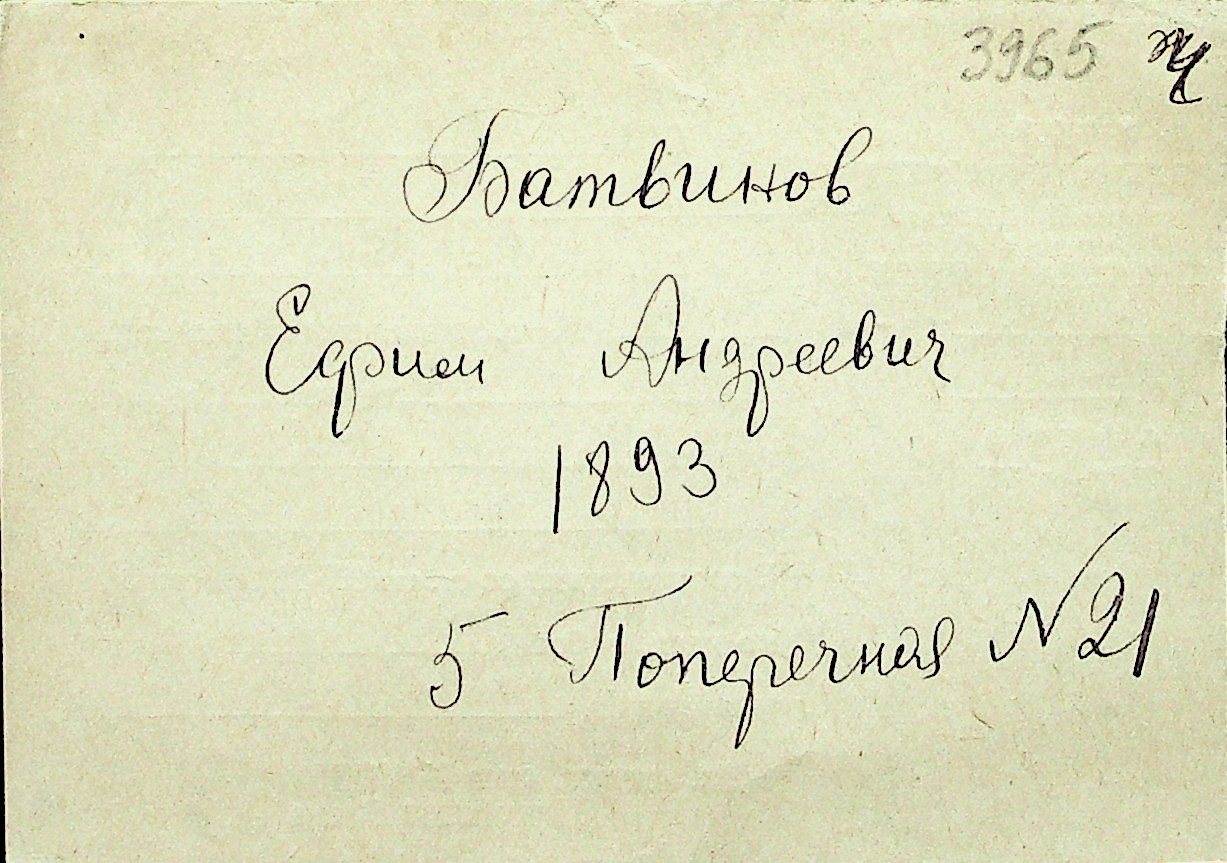 3965
Батвинов
Ефрим Андреевич
1893
5 Поперечная N 21